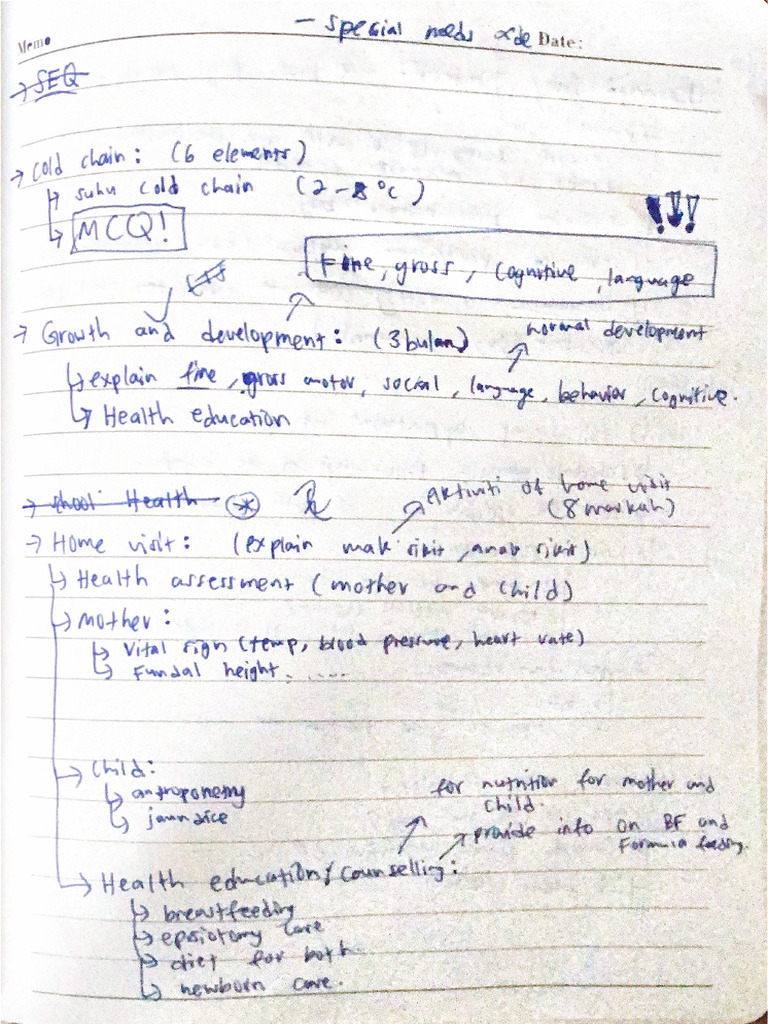 - special needs xde
Memo Date:
→ SEQ
→ cold chain: (6 elements)
↳ suhu cold chain (2 - 8 °C)
↳ MCQ!
!!!
Fine, gross, cognitive, language
→ Growth and development: (3 bulan)
normal development
↳ explain fine, gross motor, social, language, behavior, cognitive.
↳ Health education
→ school Health
Aktiviti of home visit
(8 markah)
→ Home visit: (explain mak sikit, anak sikit)
↳ Health assessment (mother and child)
↳ Mother:
↳ Vital sign (temp, blood pressure, heart rate)
↳ Fundal height.....
→ Child:
↳ antropometry
↳ jaundice
for nutrition for mother and
child.
provide info on BF and
Formula feeding.
→ Health education/counselling:
↳ breastfeeding
↳ epsiotomy care
↳ diet for both
↳ newborn care.